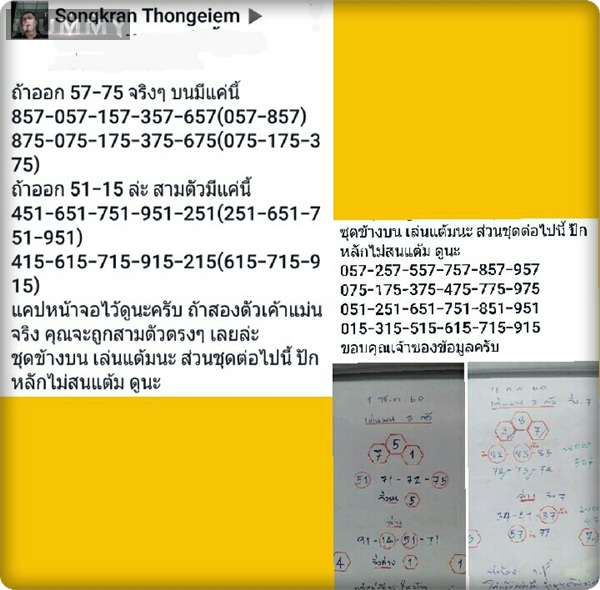 Songkran Thongeiem
MUMMY
ถ้าออก 57-75 จริงๆ บนมีแค่นี้
857-057-157-357-657(057-857)
875-075-175-375-675(075-175-3
75)
ถ้าออก 51-15 ล่ะ สามตัวมีแค่นี้
451-651-751-951-251(251-651-7
51-951)
415-615-715-915-215(615-715-9
15)
แคปหน้าจอไว้ดูนะครับ ถ้าสองตัวเค้าแม่น
จริง คุณจะถูกสามตัวตรงๆ เลยล่ะ
ชุดข้างบน เล่นแต้มนะ ส่วนชุดต่อไปนี้ ปัก
หลักไม่สนแต้ม ดูนะ
ชุดข้างบน เล่นแต้มนะ ส่วนชุดต่อไปนี้ ปัก
หลักไม่สนแต้ม ดูนะ
057-257-557-757-857-957
075-175-375-475-775-975
051-251-651-751-851-951
015-315-515-615-715-915
ขอบคุณเจ้าของข้อมูลครับ
5
7 1
51 71-72-75
5
ล่าง
91-14-51-71
4 1 1
8
3 7
82-83-85
72-73-72
527
ล่าง 7
34-21-37
57 77
7